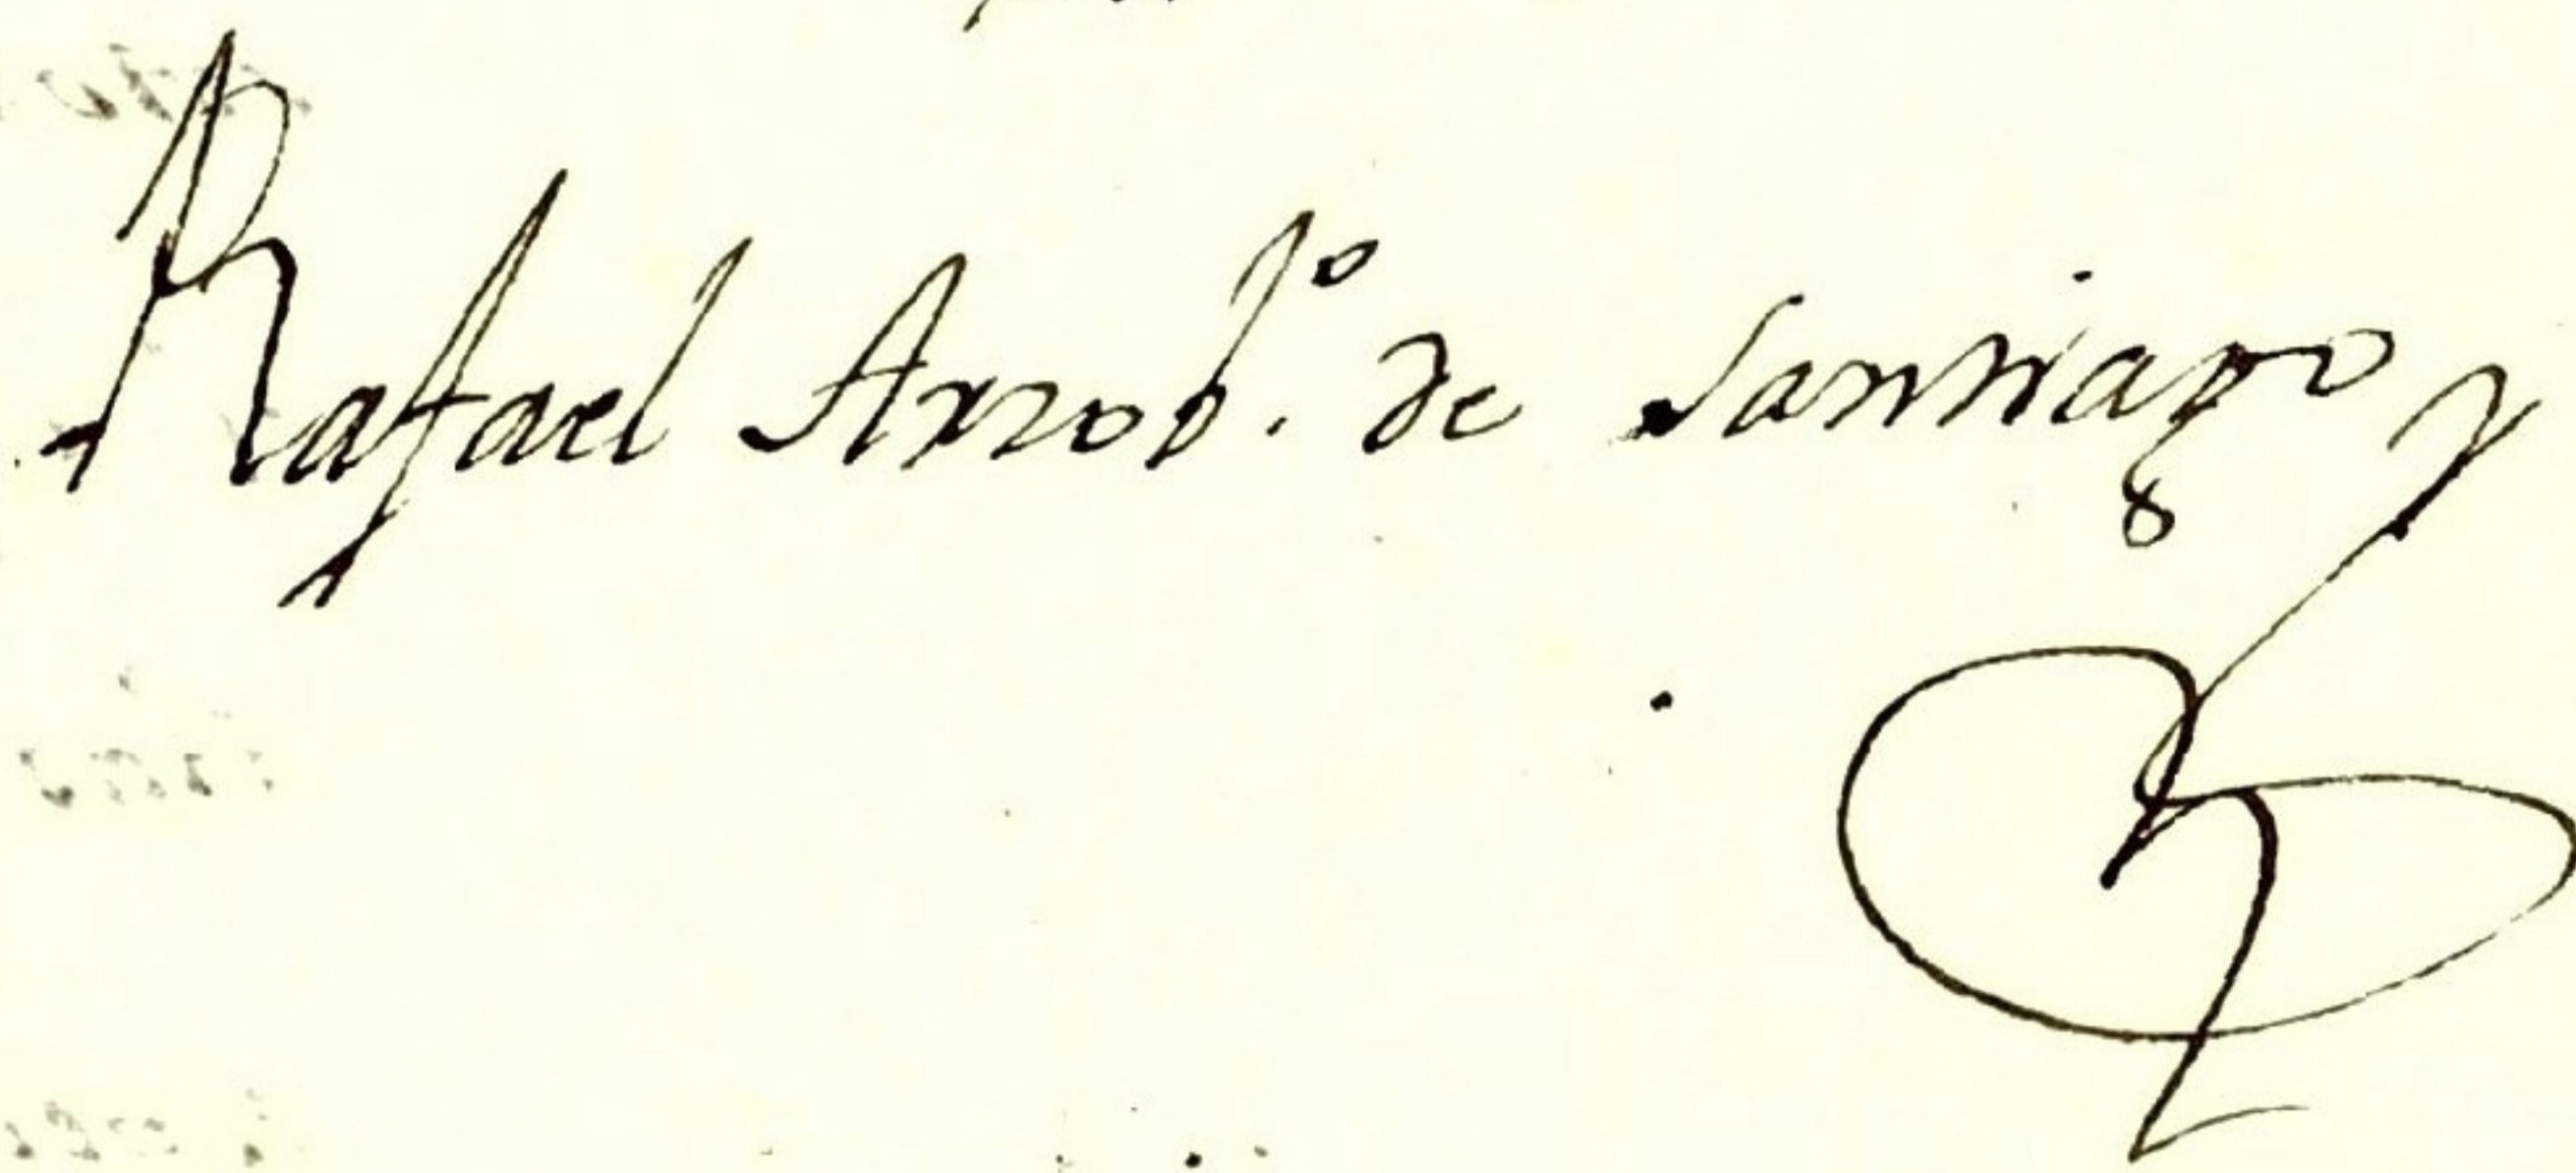 Rafael Arzob.º de Santiago